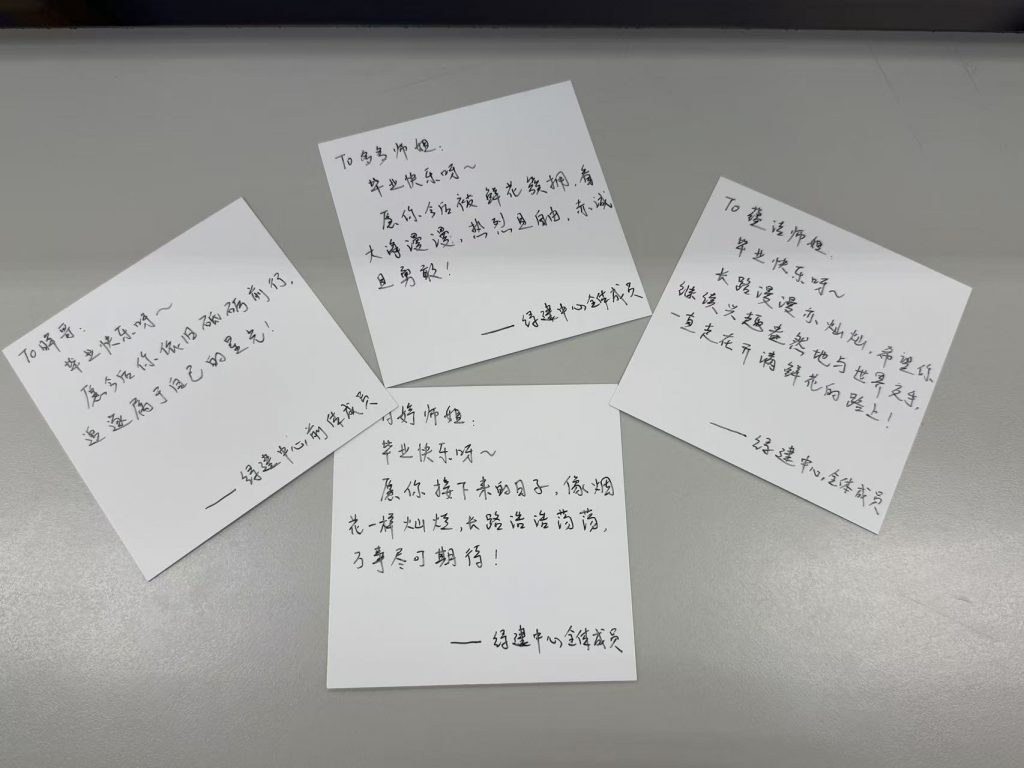 To 多多师姐：
毕业快乐呀～
愿你今后被鲜花簇拥，看
大海漫漫，热烈且自由，赤诚
且勇敢！
——绿建中心全体成员
To 晖哥：
毕业快乐呀～
愿今后你依旧砥砺前行，
追逐属于自己的星光！
——绿建中心全体成员
To 蕴洁师姐：
毕业快乐呀～
长路漫漫亦灿灿，希望你
继续兴趣盎然地与世界交手，
一直走在开满鲜花的路上！
——绿建中心全体成员
婷师姐：
毕业快乐呀～
愿你接下来的日子，像烟
花一样灿烂，长路浩浩荡荡，
万事尽可期待！
——绿建中心全体成员